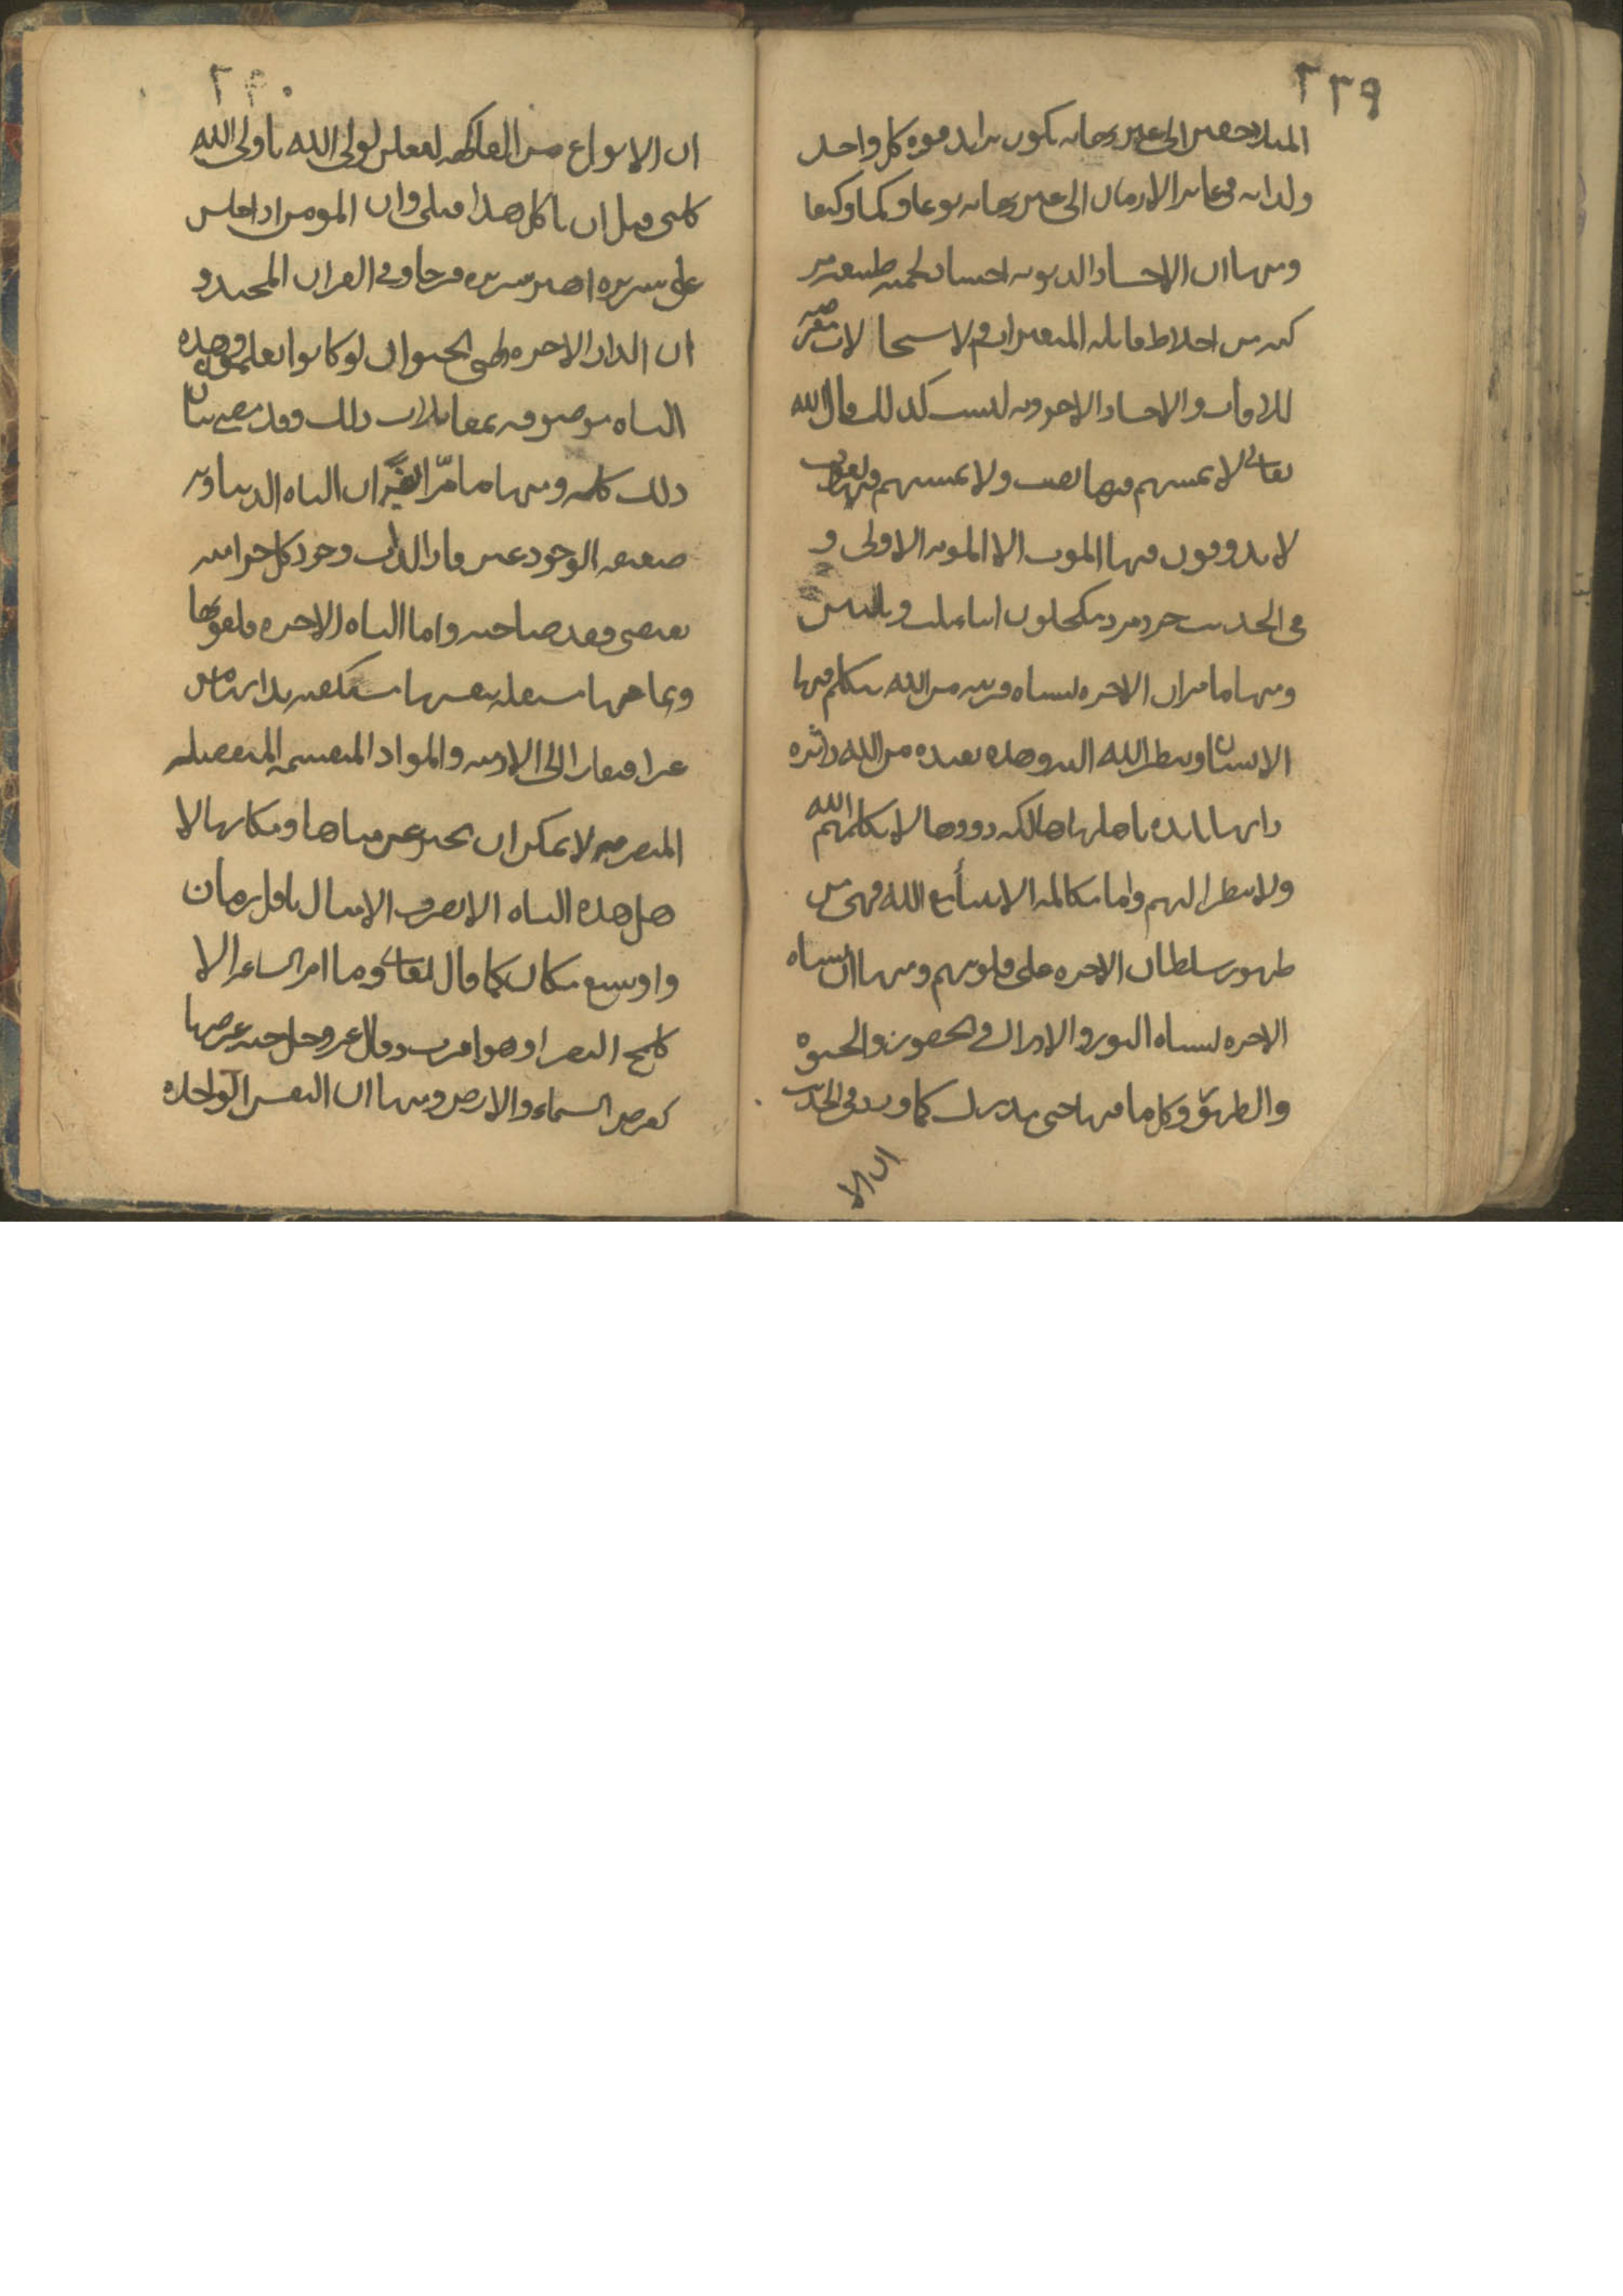 ٢٣٩
المتلاحقين الى غير نهاية يكون تزايد قوة كل واحد
ولذاته فى غابر الازمان الى غير نهاية نوعا وكما وكيفا
ومنها ان الاجساد الدنيوية اجساد لحمية طبيعية مر
كبة من اخلاط قابلة للتغيرات والاستحالات معرضة
للافات والاجساد الاخروية ليست كذلك قال الله
تعالى لا يمسهم فيها نصب ولا يمسهم فيها لغوب
لا يذوقون فيها الموت الا الموتة الاولى و
فى الحديث جرد مرد مكحلون ابناء ثلث وثلثين
ومنها ما مر ان الاخرة نشاة قريبة من الله يتكلم فيها
الانسان وينظر الله اليه وهذه بعيدة من الله داثرة
ذاتها بائدة باهلها هالكة دونها لا يكلمهم الله
ولا ينظر اليهم واما مكالمة الانبيأ مع الله فهى من
ظهور سلطان الاخرة على قلوبهم ومنها ان نشاة
الاخرة نشاة النور والادراك والحضور والحيوة
والطريق وكل ما فيها حى مدرك كما ورد فى الحديث
ان الا
٢٤٠
ان الانواع من الفاكهة لتقلن لولى الله يا ولى الله
كلنى قبل ان تاكل هذا قبلى وان المومن اذا جلس
على سريره اهتز سريره فرحا وفى القران المجيد و
ان الدار الاخرة لهى الحيوان لو كانوا يعلمون وهذه
النشاة موصوفة بمقابلات ذلك وقد مضى بيان
ذلك كله ومنها ما مرّ ايضًا ان النشاة الدنياوية
ضعيفة الوجود غير قار الذات وجود كل جزء منه
يقتضى فقد صاحبه واما النشاة الاخرة فلقوتها
وتمامها مستقلة بنفسها مستكفية بذاتها من
غير افتقار الى الازمنة والمواد المنقسمة المنفصلة
المتصرمة لا يمكن ان يخبر عن زمانها ومكانها الا
هل هذه النشاة الا بضرب الامثال باقل زمان
واوسع مكان كما قال تعالى وما امر الساعة الا
كلمح البصر او هو اقرب وقال عز وجل جنة عرضها
كعرض السماء والارض ومنها ان النفس الواحدة